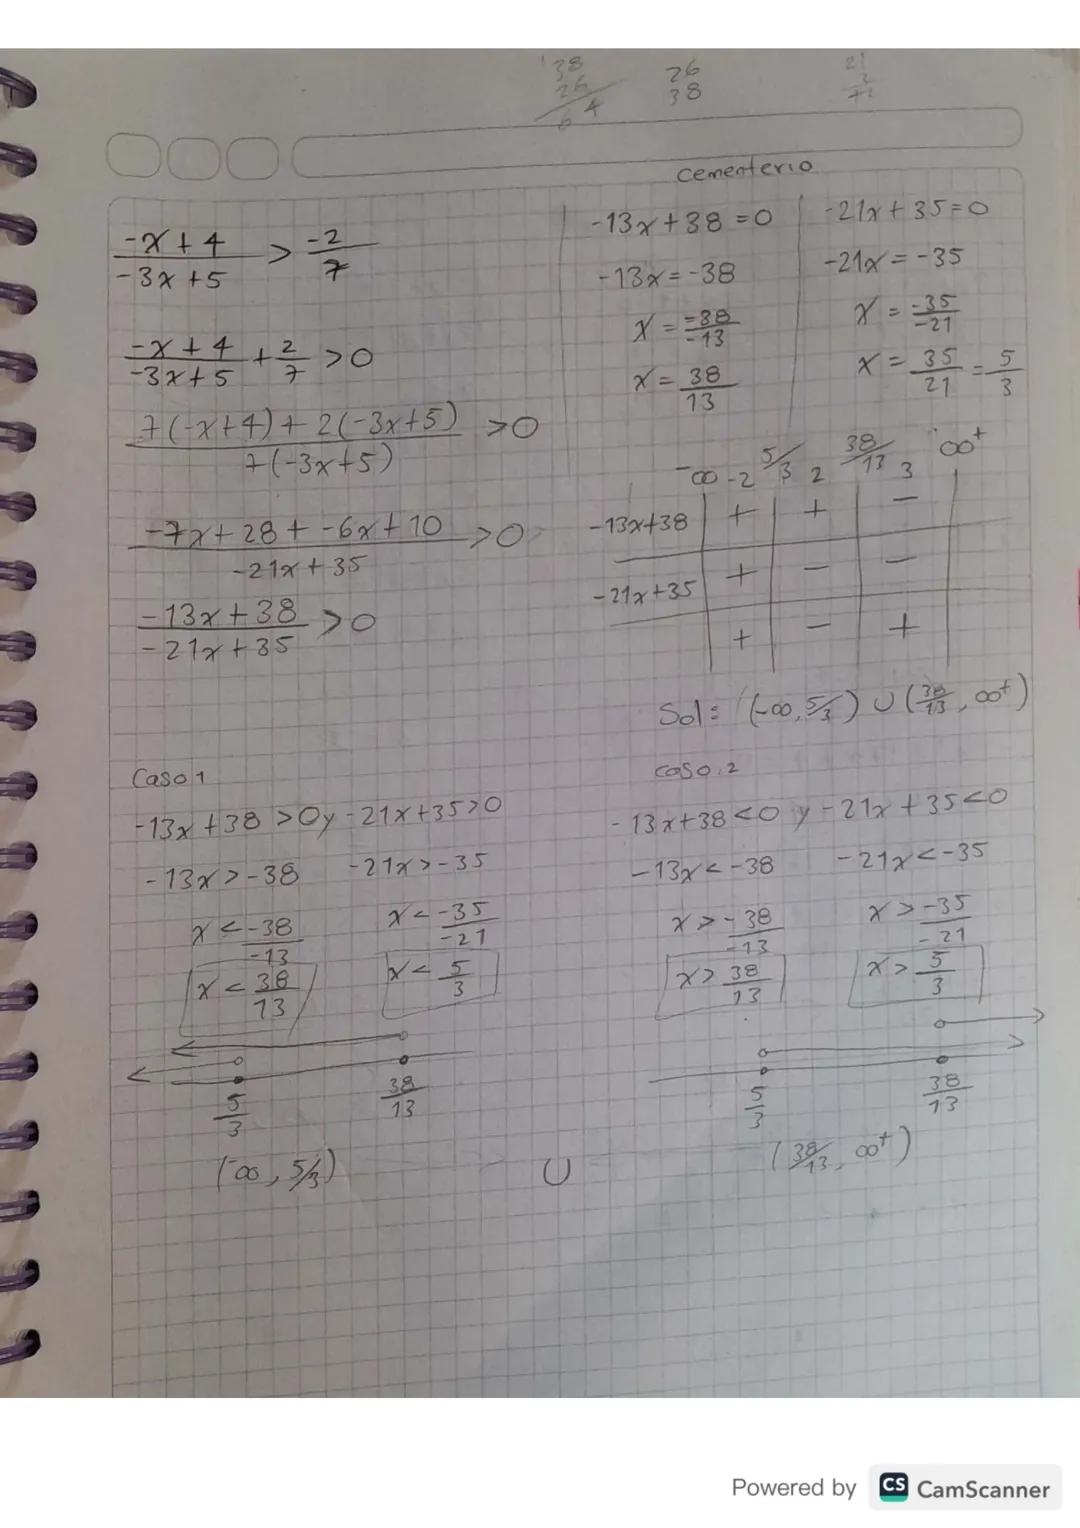 38
26
64
26
38
21
Cementerio
-x+4/-3x+5 > -2/7
-x+4/-3x+5 + 2/7 >0
7(-x+4)+2(-3x+5)/7(-3x+5) >0
-7x+28+-6x+10/-21x+35 >0
-13x+38/-21x+35 >0
-13x+38=0
-13x=-38
x=-38/-13
x=38/13
-21x+35=0
-21x=-35
x=-35/-21
x=35/21=5/3
-∞ -2 5/3 2 38/13 3 ∞+
-13x+38 + + -
-21x+35 + - -
+ - +
Sol: (-∞,5/3)∪(38/13,∞+)
Caso 1
-13x+38>0 y -21x+35>0
-13x>-38 -21x>-35
x<-38/-13 x<-35/-21
x<38/13 x<5/3
5/3 38/13
(-∞,5/3)
∪
caso.2
-13x+38<0 y -21x+35<0
-13x<-38 -21x<-35
x>-38/-13 x>-35/-21
x>38/13 x>5/3
5/3 38/13
(38/13,∞+)
Powered by CS CamScanner